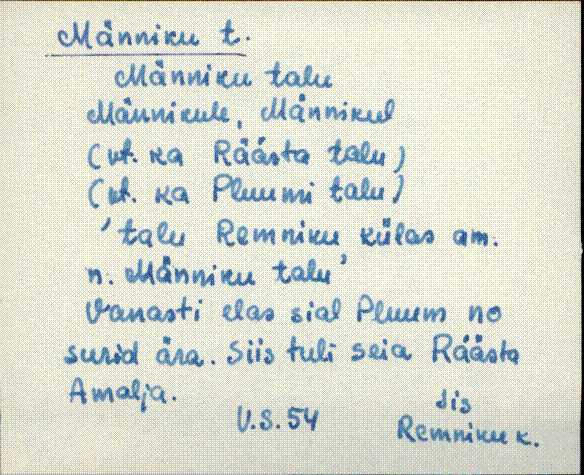 Männiku t.
Männiku talu
Männikule, Männikul
(vt. ka Räästa talu)
(vt. ka Pluumi talu)
'talu Remniku külas am.
n. Männiku talu'
Vanasti elas sial Pluum no
surid ära. Siis tuli seia Räästa
Amalja.
V.S. 54 Iis
Remniku k.